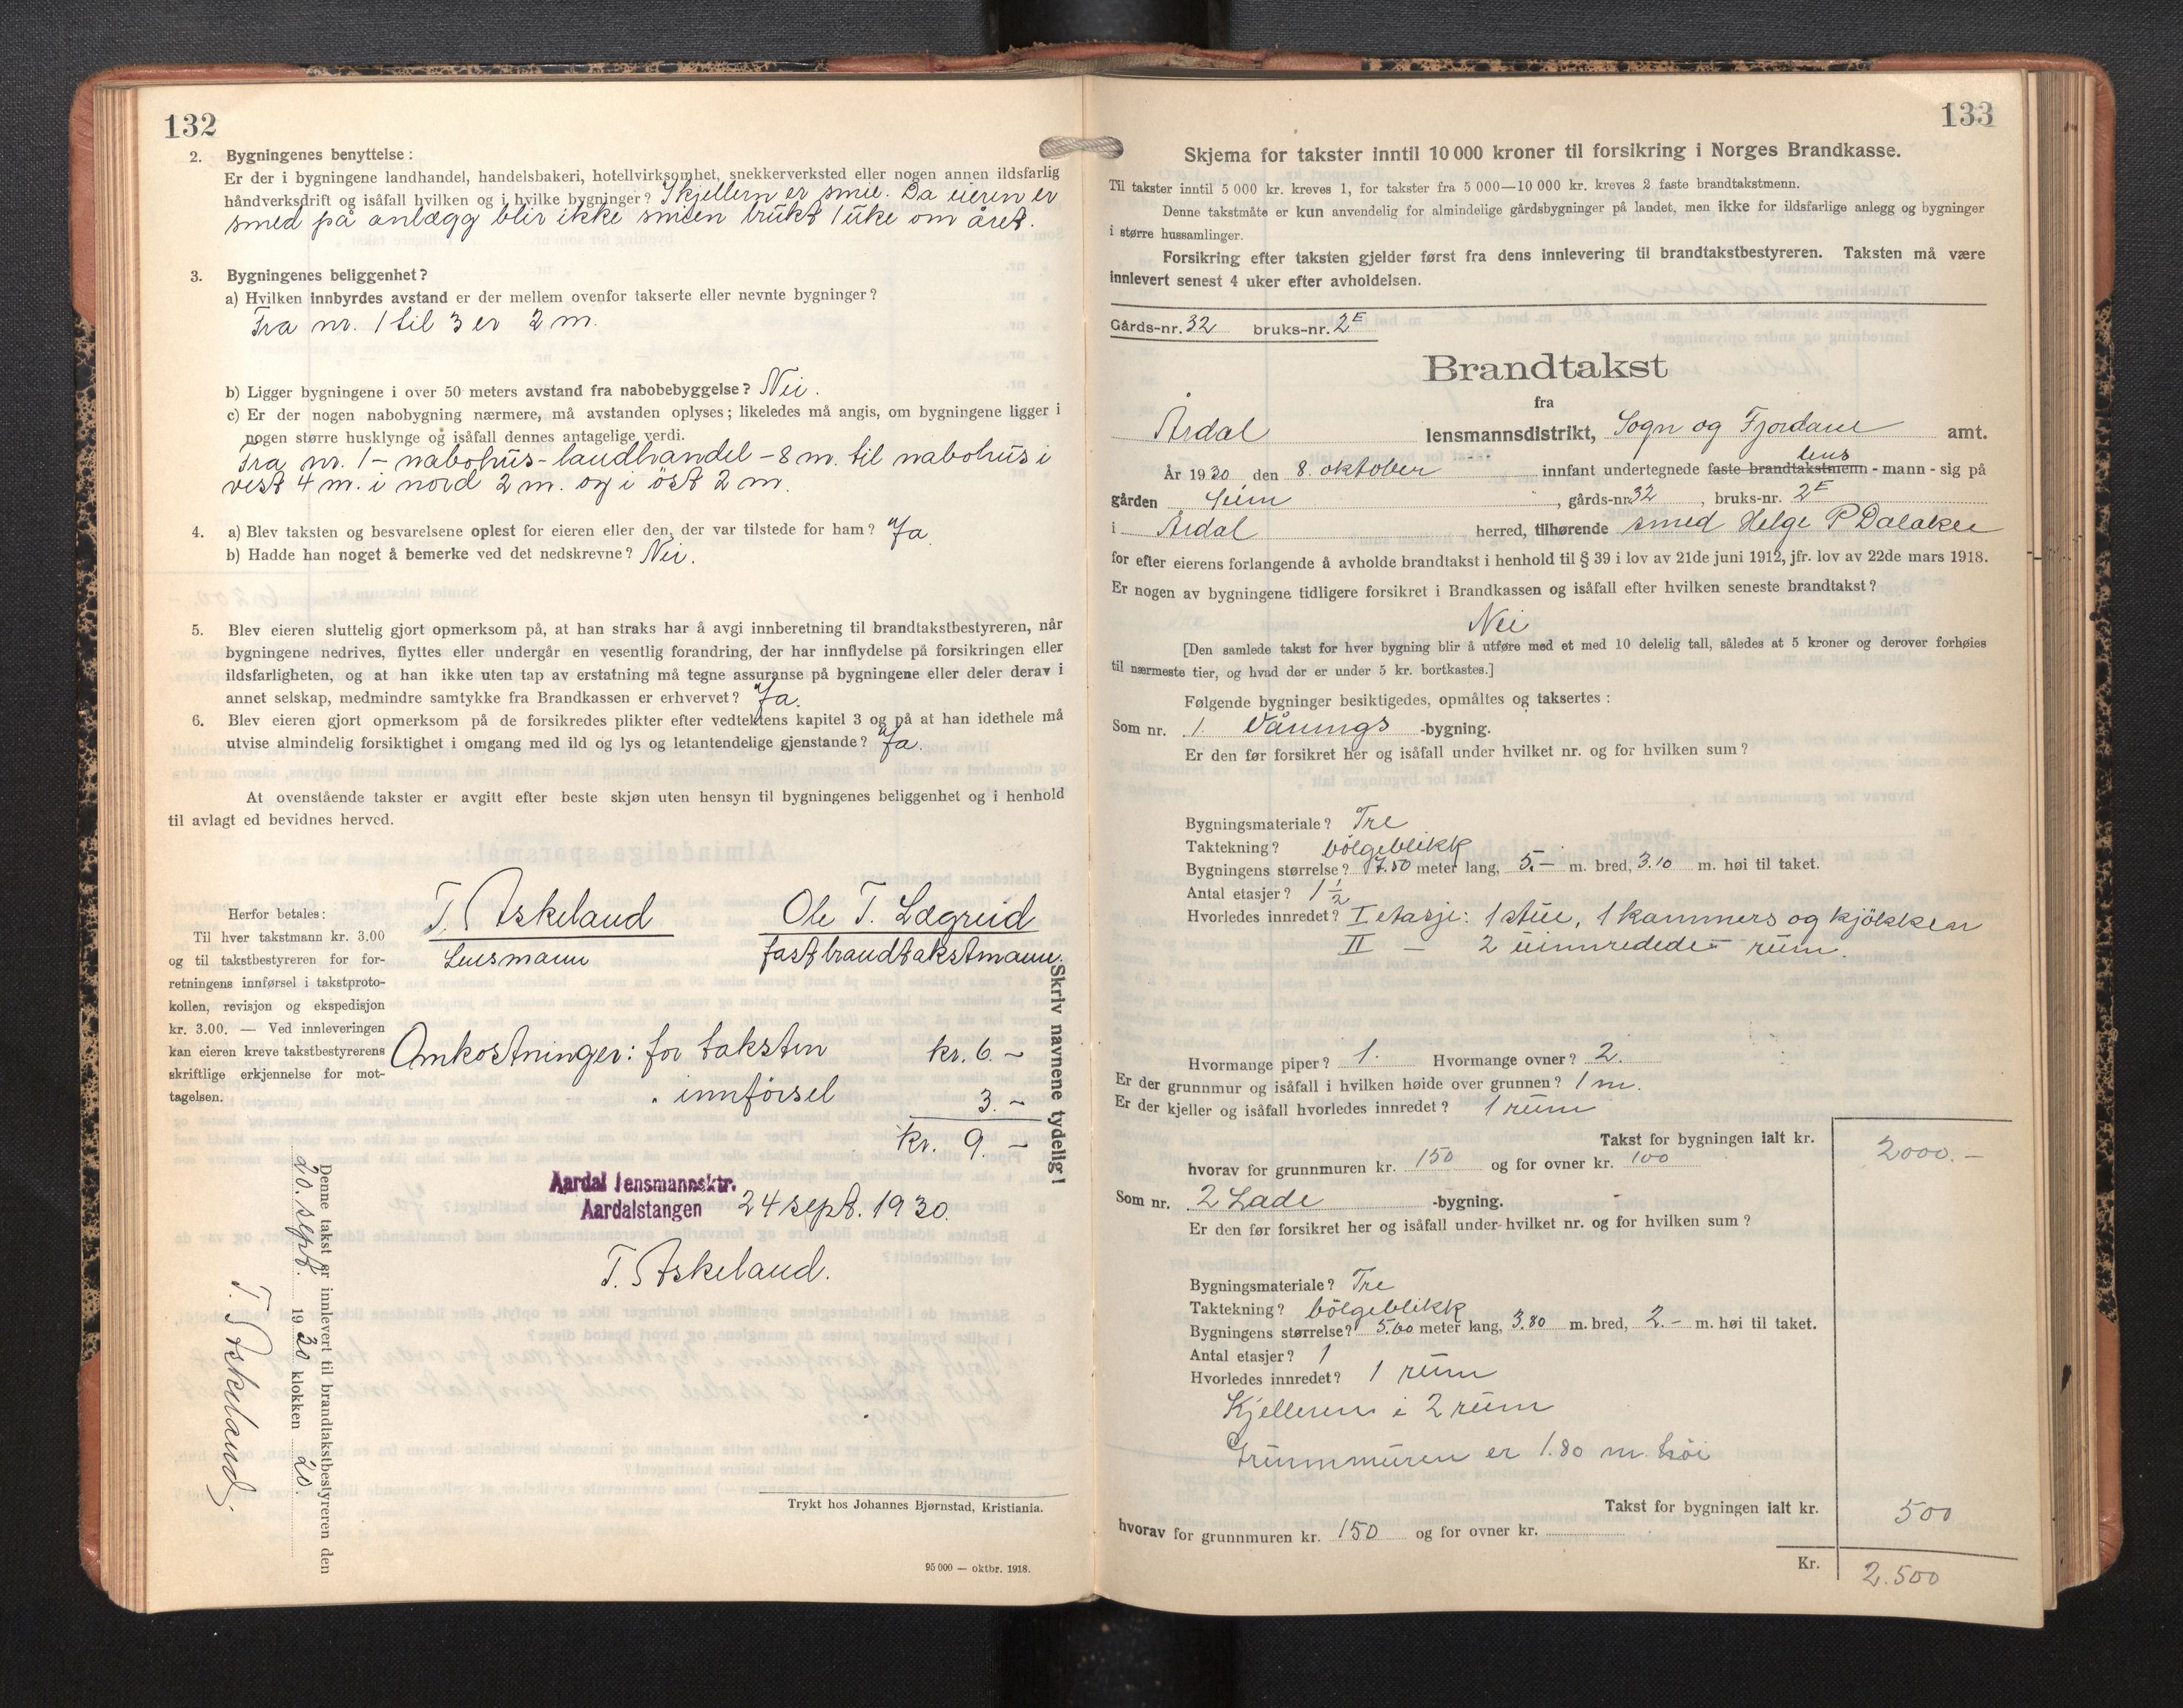 132
2. Bygningenes benyttelse:
Er der i bygningene landhandel, handelsbakeri, hotellvirksomhet, snekkerverksted eller nogen annen ildsfarlig
håndverksdrift og isåfall hvilken og i hvilke bygninger? I kjellern er smie. Da eieren er
smed på anlægg blir ikke smien brukt 1 uke om året.
3. Bygningenes beliggenhet?
a) Hvilken innbyrdes avstand er der mellem ovenfor takserte eller nevnte bygninger?
Fra nr. 1 til 3 er 2 m.
b) Ligger bygningene i over 50 meters avstand fra nabobebyggelse? Nei.
c) Er der nogen nabobygning nærmere, må avstanden oplyses; likeledes må angis, om bygningene ligger i
nogen større husklynge og isåfall dennes antagelige verdi.
Fra nr. 1 - nabohus - landhandel - 8 m. til nabohus i
vest 4 m. i nord 2 m. og i öst 2 m.
4. a) Blev taksten og besvarelsene oplest for eieren eller den, der var tilstede for ham? Ja
b) Hadde han noget å bemerke ved det nedskrevne? Nei.
5. Blev eieren sluttelig gjort opmerksom på, at han straks har å avgi innberetning til brandtakstbestyreren, når
bygningene nedrives, flyttes eller undergår en vesentlig forandring, der har innflydelse på forsikringen eller
ildsfarligheten, og at han ikke uten tap av erstatning må tegne assuranse på bygningene eller deler derav i
annet selskap, medmindre samtykke fra Brandkassen er erhvervet? Ja.
6. Blev eieren gjort opmerksom på de forsikredes plikter efter vedtektens kapitel 3 og på at han idethele må
utvise almindelig forsiktighet i omgang med ild og lys og letantendelige gjenstande? Ja.
At ovenstående takster er avgitt efter beste skjøn uten hensyn til bygningenes beliggenhet og i henhold
til avlagt ed bevidnes herved.
T. Askeland Ole T. Lægreid
Lensmann fast brandtakstmann.
Herfor betales:
Til hver takstmann kr. 3.00
og til takstbestyreren for for-
retningens innførsel i takstproto-
kollen, revisjon og ekspedisjon
kr. 3.00. — Ved innleveringen
kan eieren kreve takstbestyrerens
skriftlige erkjennelse for mot-
tagelsen.
Skriv navnene tydelig!
Omkostninger: for taksten kr. 6.-
" innførsel 3.-
kr. 9.-
Aardal lensmannsktr.
Aardalstangen 24 sept. 1930.
T. Askeland.
Denne takst er innlevert til brandtakstbestyreren den
20. sept. 1930 klokken 20.
T. Askeland.
Trykt hos Johannes Bjørnstad, Kristiania.
95 000 — oktbr. 1918.
133
Skjema for takster inntil 10 000 kroner til forsikring i Norges Brandkasse.
Til takster inntil 5 000 kr. kreves 1, for takster fra 5 000—10 000 kr. kreves 2 faste brandtakstmenn.
Denne takstmåte er kun anvendelig for almindelige gårdsbygninger på landet, men ikke for ildsfarlige anlegg og bygninger
i større hussamlinger.
Forsikring efter taksten gjelder først fra dens innlevering til brandtakstbestyreren. Taksten må være
innlevert senest 4 uker efter avholdelsen.
Gårds-nr. 32 bruks-nr. 2E
Brandtakst
fra
Årdal lensmannsdistrikt, Sogn og Fjordane amt.
År 1930 den 8. oktober innfant undertegnede faste brandtakstmenn lens-mann - sig på
gården Seim, gårds-nr. 32, bruks-nr. 2E
i Årdal herred, tilhørende smed Helge P Dalaker
for efter eierens forlangende å avholde brandtakst i henhold til § 39 i lov av 21de juni 1912, jfr. lov av 22de mars 1918.
Er nogen av bygningene tidligere forsikret i Brandkassen og isåfall efter hvilken seneste brandtakst?
Nei
[Den samlede takst for hver bygning blir å utføre med et med 10 delelig tall, således at 5 kroner og derover forhøies
til nærmeste tier, og hvad der er under 5 kr. bortkastes.]
Følgende bygninger besiktigedes, opmåltes og taksertes:
Som nr. 1. Vånings -bygning.
Er den før forsikret her og isåfall under hvilket nr. og for hvilken sum?
Bygningsmateriale? Tre
Taktekning? bölgeblikk
Bygningens størrelse? 7.80 meter lang, 5.- m. bred, 3.10 m. høi til taket.
Antal etasjer? 1 1/2
Hvorledes innredet? I etasje: 1 stue, 1 kammers og kjökken
II — 2 uinnredede rum.
Hvormange piper? 1. Hvormange ovner? 2.
Er der grunnmur og isåfall i hvilken høide over grunnen? 1 m.
Er der kjeller og isåfall hvorledes innredet? 1 rum
Takst for bygningen ialt kr. 2000.-
hvorav for grunnmuren kr. 150 og for ovner kr. 100
Som nr. 2 Lade -bygning.
Er den før forsikret her og isåfall under hvilket nr. og for hvilken sum?
Bygningsmateriale? Tre
Taktekning? bölgeblikk
Bygningens størrelse? 5.60 meter lang, 3.80 m. bred, 2.- m. høi til taket.
Antal etasjer? 1
Hvorledes innredet? 1 rum
Kjelleren i 2 rum
Grunnmuren er 1.80 m. höi
Takst for bygningen ialt kr. 500
hvorav for grunnmuren kr. 150 og for ovner kr.
Kr. 2.500